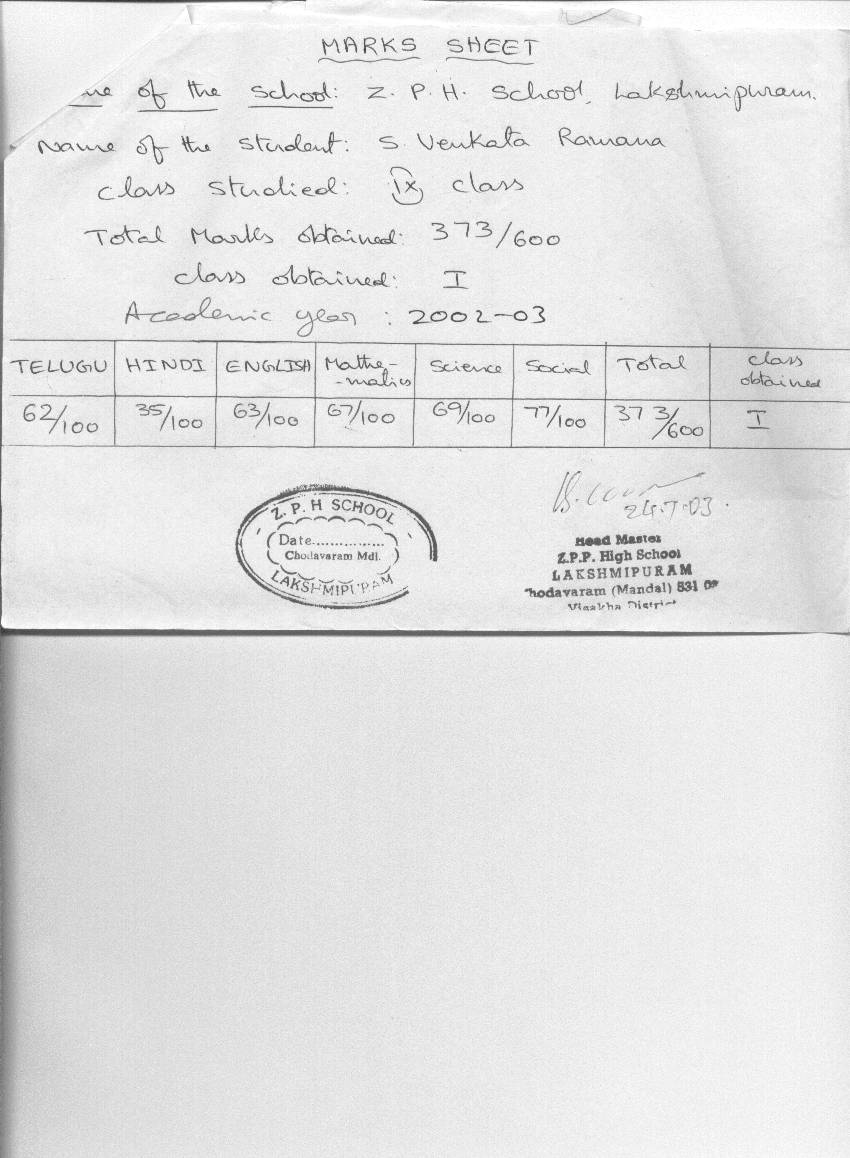 MARKS SHEET
me of the School: Z. P. H. School, Lakshmipuram.
Name of the Student: S. Venkata Ramana
Class Studied: IX class
Total Marks obtained: 373/600
class obtained: I
Academic year : 2002-03
TELUGU HINDI ENGLISH Mathe- Science Social Total class
-matics obtained
62/100 35/100 63/100 67/100 69/100 77/100 373/600 I
Z. P. H SCHOOL
Date...............
Chodavaram Mdl.
LAKSHMIPURAM
24.7.03
Head Master
Z.P.P. High School
LAKSHMIPURAM
hodavaram (Mandal) 531 0
Visakha District